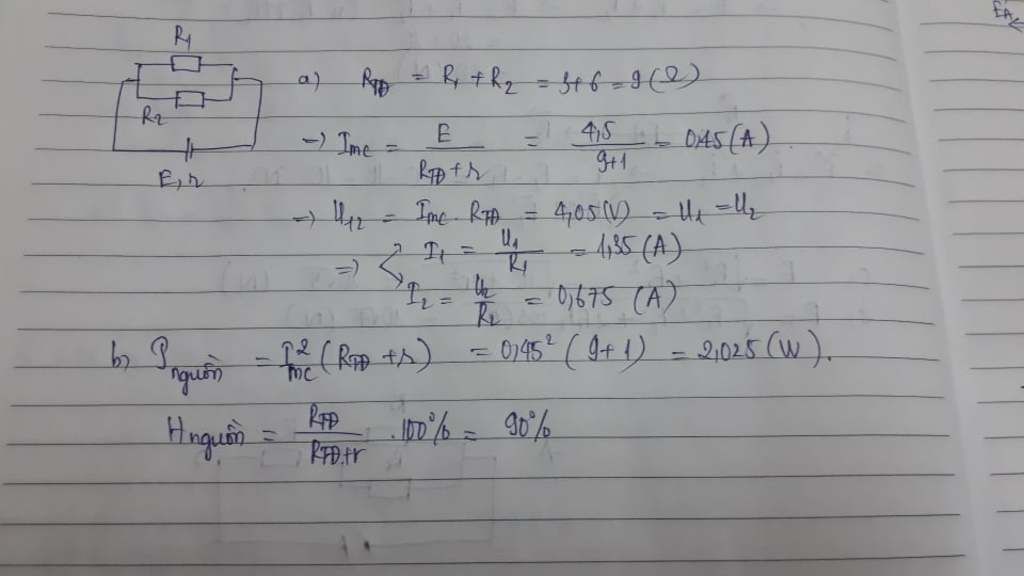 R₁
R₂
E, r
a) R_TĐ = R₁ + R₂ = 3+6 = 9 (Ω)
→ I_mc = E / (R_TĐ + r) = 4,5 / (9+1) = 0,45 (A)
→ U₁₂ = I_mc . R_TĐ = 4,05 (V) = U₁ = U₂
⇒ I₁ = U₁ / R₁ = 1,35 (A)
I₂ = U₂ / R₂ = 0,675 (A)
b, P_nguồn = I²_mc (R_TĐ + r) = 0,45² (9+1) = 2,025 (W).
H nguồn = R_TĐ / (R_TĐ + r) . 100% = 90%